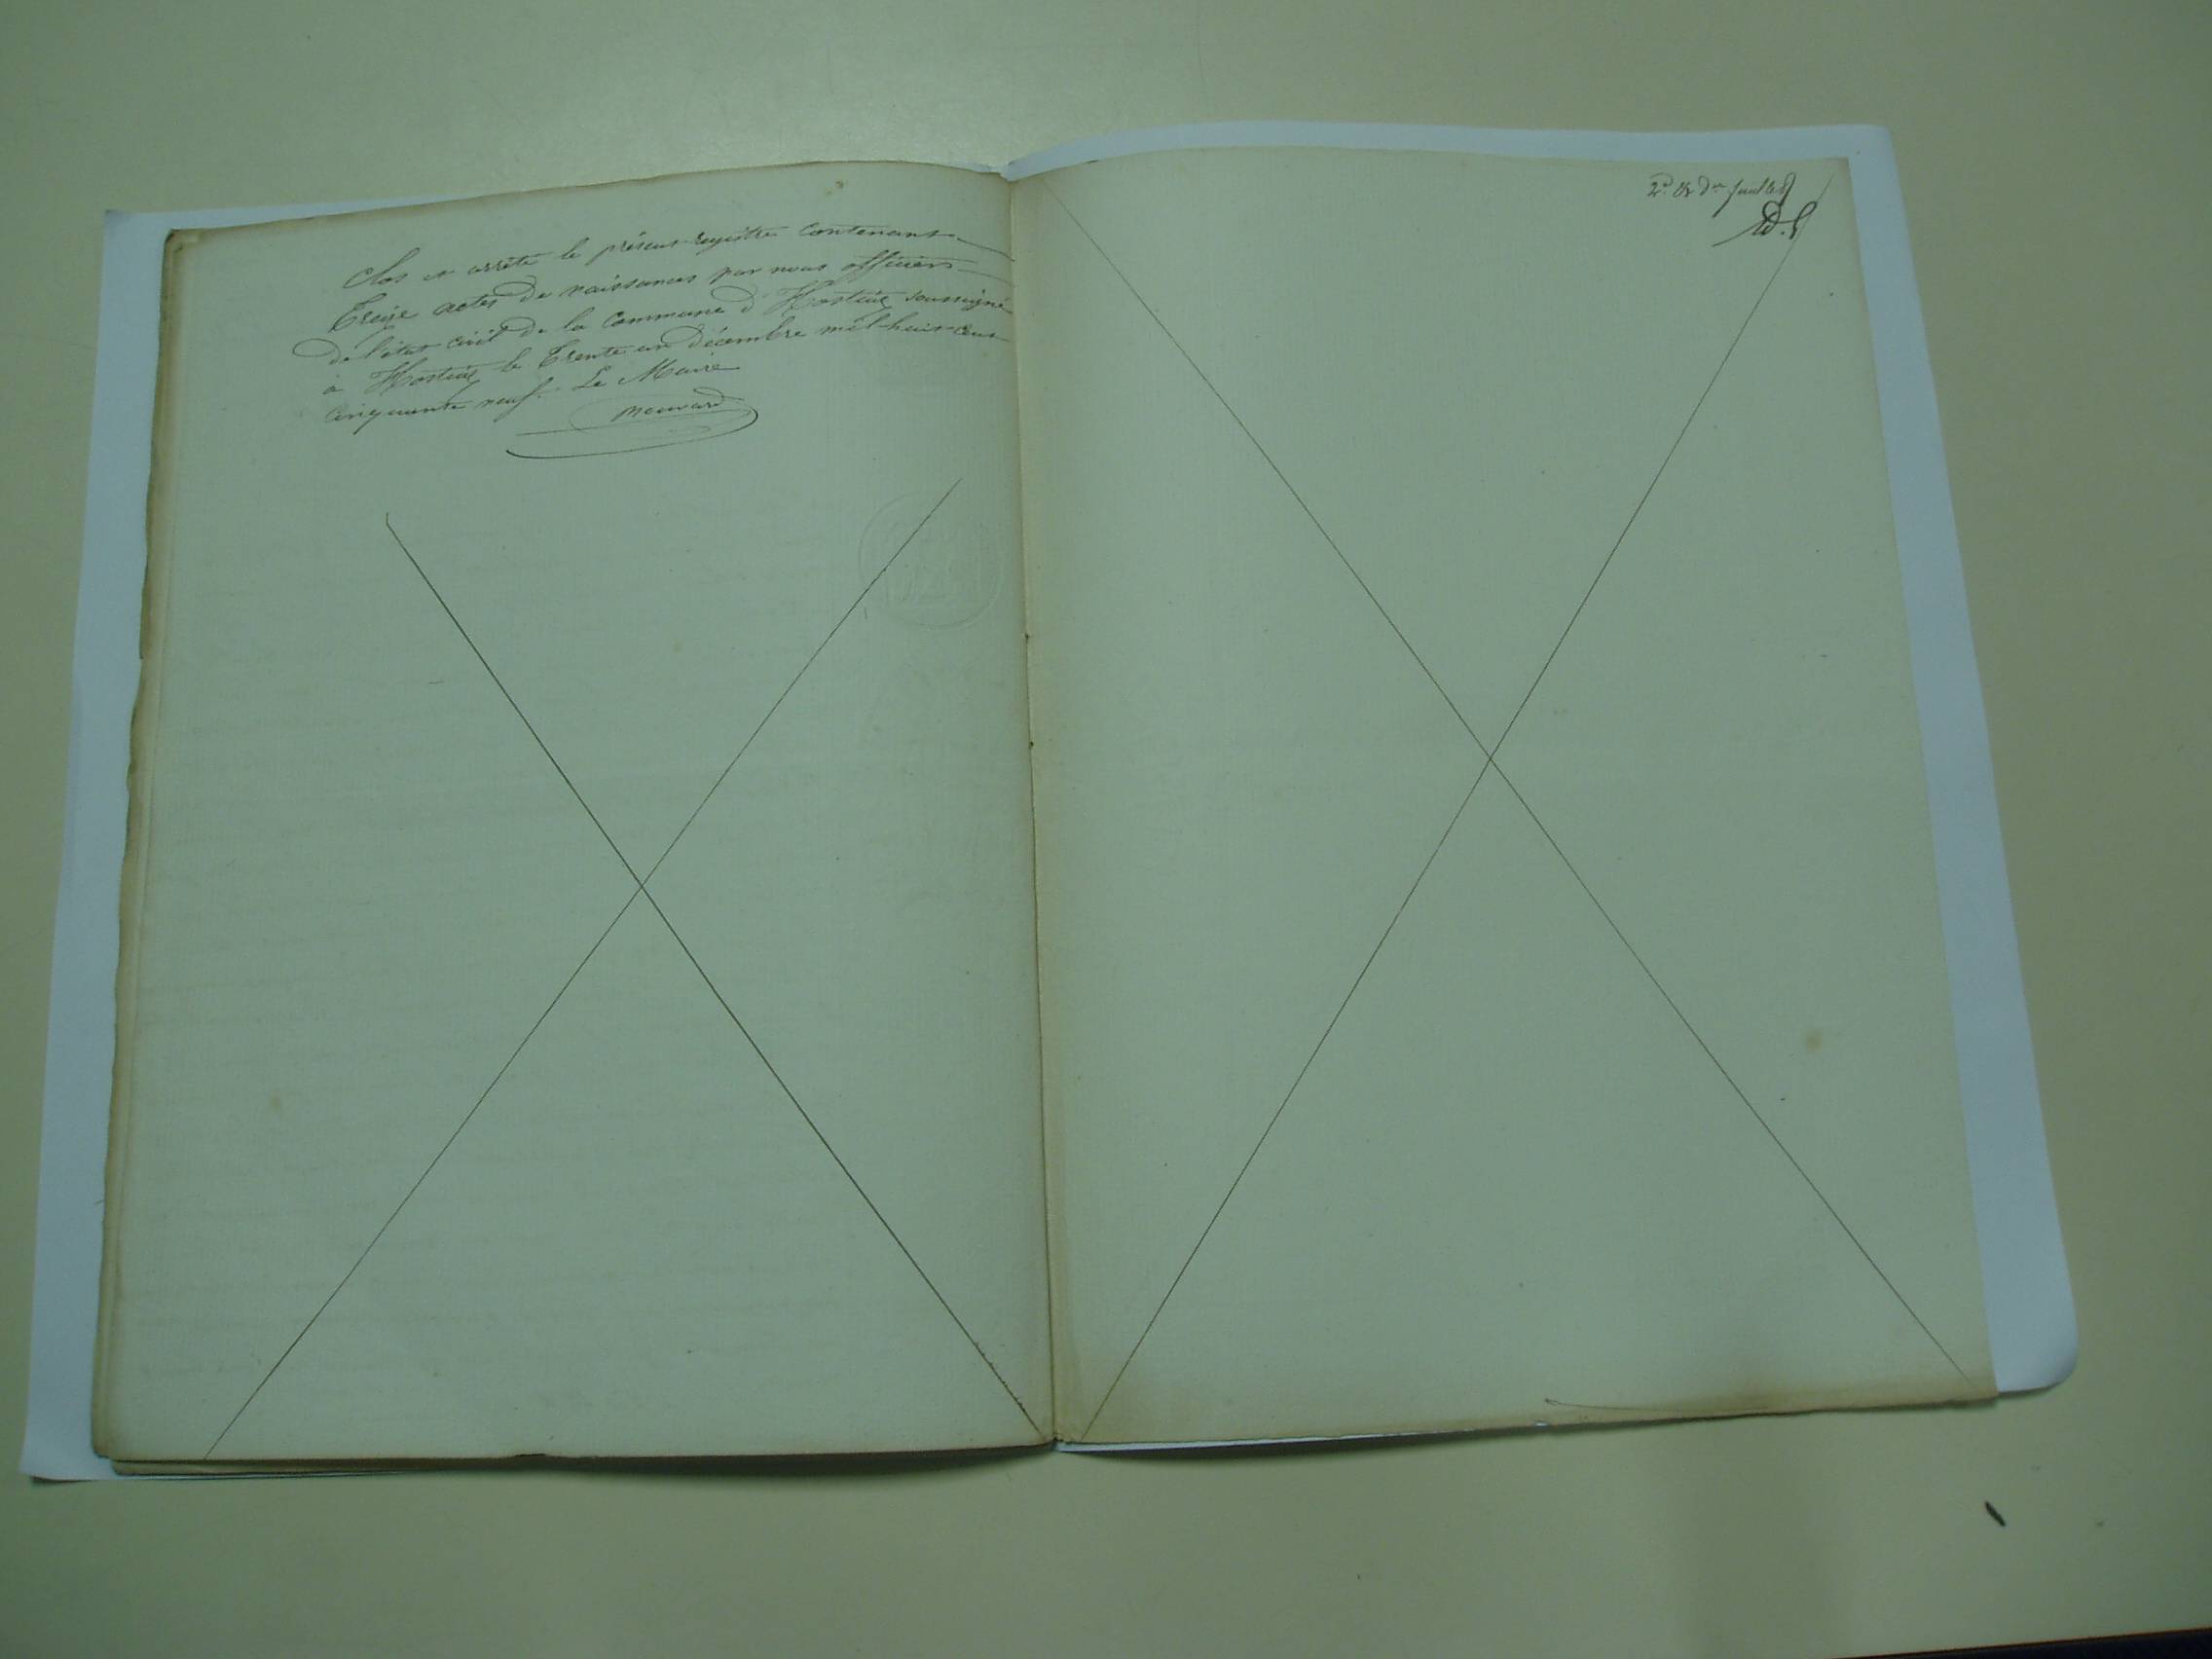 Clos et arrêté le présent registre contenant
Treize actes de naissances par nous officiers
de l'état civil de la Commune d'Hostiaz soussigné
à Hostiaz le Trente un décembre mil-huit-cent
cinquante neuf. Le Maire
2d. & der feuillet